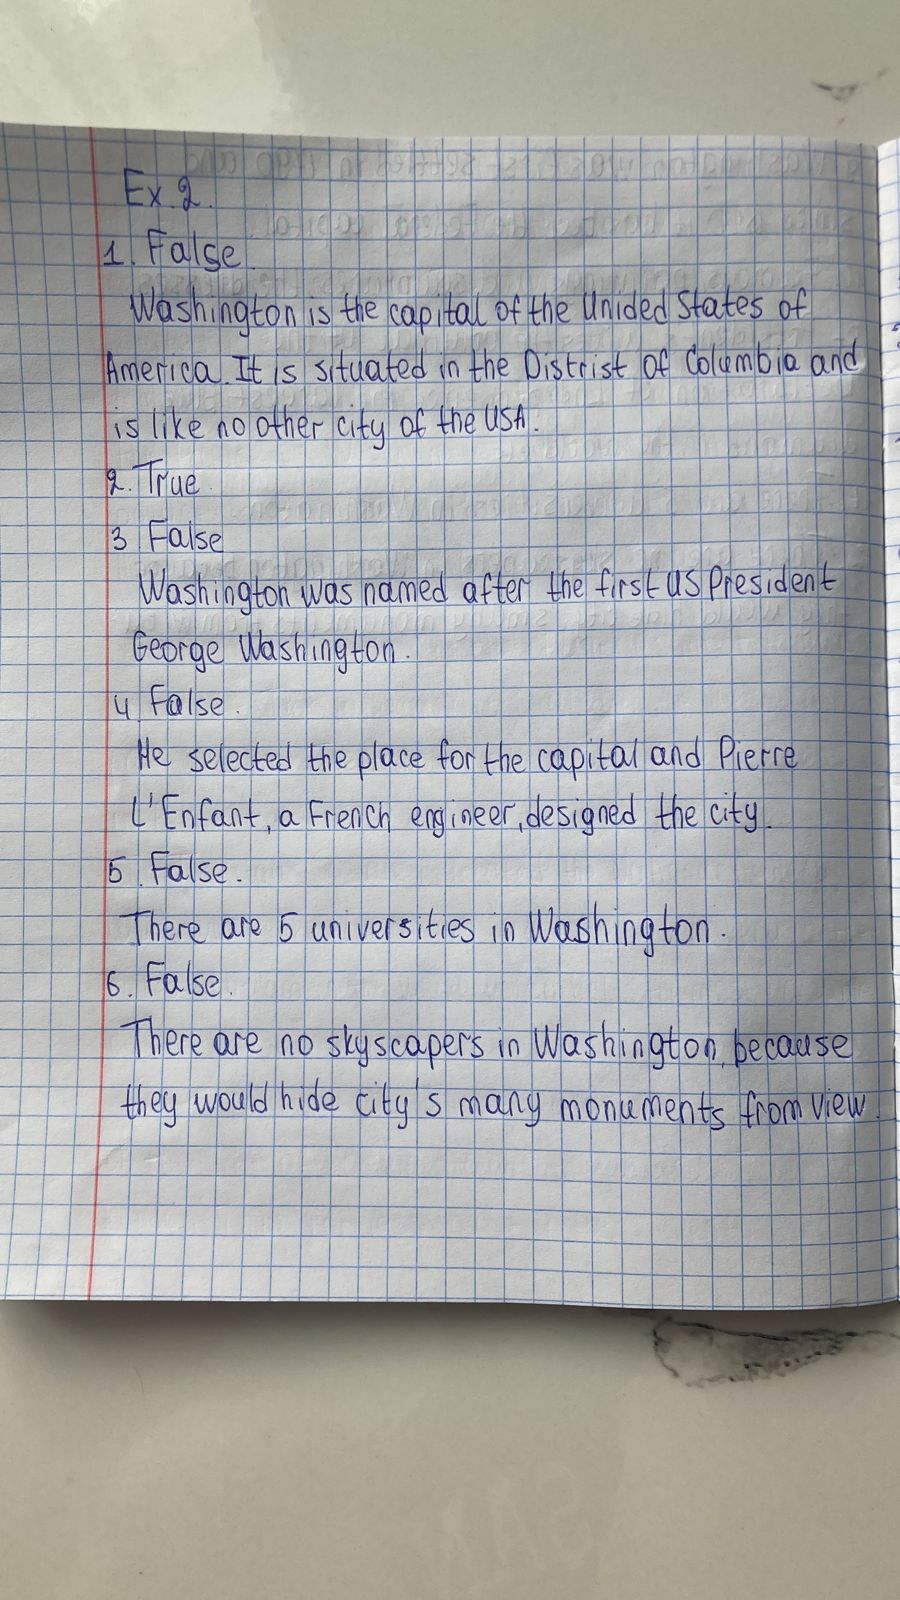 Ex. 2.
1. False.
Washington is the capital of the Unided States of
America. It is situated in the Distrist of Columbia and
is like no other city of the USA.
2. True.
3 False
Washington was named after the first US President
George Washington.
4. False.
He selected the place for the capital and Pierre
L'Enfant, a French engineer, designed the city.
5. False.
There are 5 universities in Washington.
6. False.
There are no skyscapers in Washington, because
they would hide city's many monuments from view.